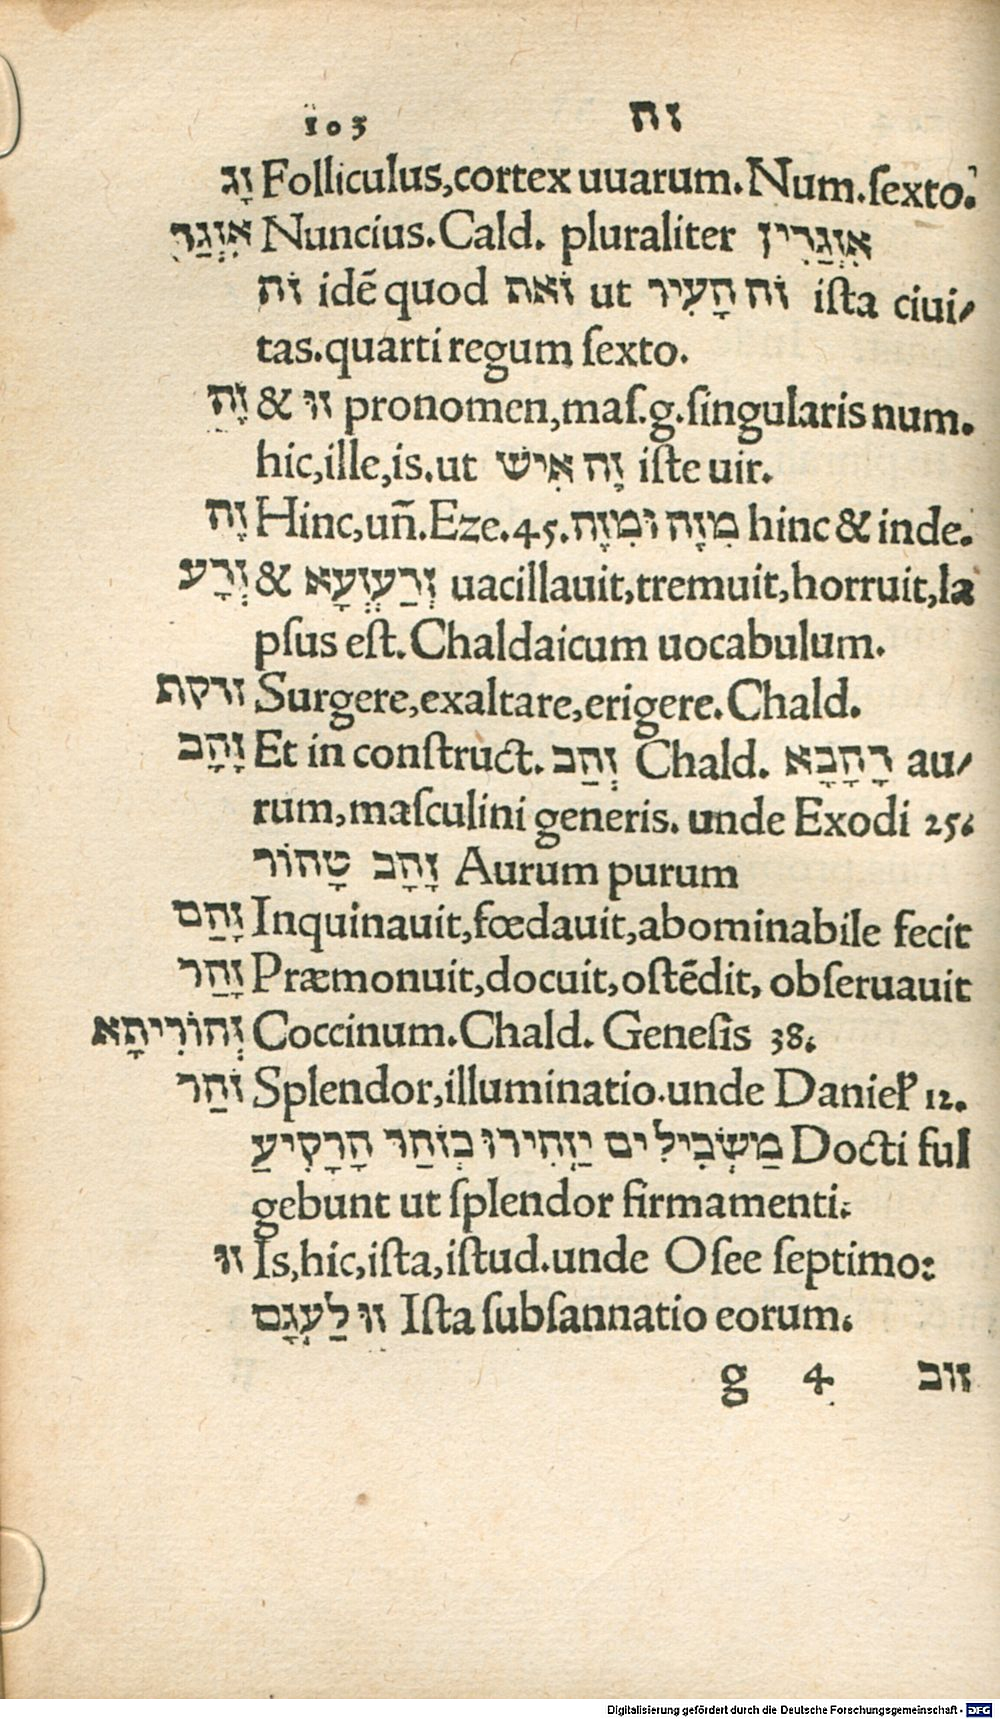 103 זה
זָג Folliculus,cortex uuarum.Num.ſexto.
אִזְגַּד Nuncius.Cald. pluraliter אִזְגַּדִין
זֹה idē quod זֹאת ut זֹה הָעִיר iſta ciui/
tas.quarti regum ſexto.
זֶה & זוּ pronomen,maſ.g.ſingularis num.
hic,ille,is.ut זֶה אִישׁ iſte uir.
זֶה Hinc,uñ.Eze.45.מִזֶּה וּמִזֶּה hinc & inde.
זְרָע & זְרַעְזְעָא uacillauit,tremuit,horruit,la
pſus eſt.Chaldaicum uocabulum.
זדקת Surgere,exaltare,erigere.Chald.
זָהָב Et in conſtruct. זְהַב Chald. דָהָבָא au/
rum,maſculini generis. unde Exodi 25.
זָהָב טָהוֹר Aurum purum
זָהַם Inquinauit,fœdauit,abominabile fecit
זָהַר Præmonuit,docuit,oſtēdit, obſeruauit
זְהוֹרִיתָא Coccinum.Chald. Geneſis 38.
זֹהַר Splendor,illuminatio.unde Daniel 12.
מַשְׂכִּילִים יַזְהִירוּ כְזֹהַר הָרָקִיעַ Docti ful
gebunt ut ſplendor firmamenti.
זוּ Is,hic,iſta,iſtud.unde Oſee ſeptimo:
זוּ לַעְגָם Iſta ſubſannatio eorum.
g 4 זוב
Digitalisierung gefördert durch die Deutsche Forschungsgemeinschaft - DFG